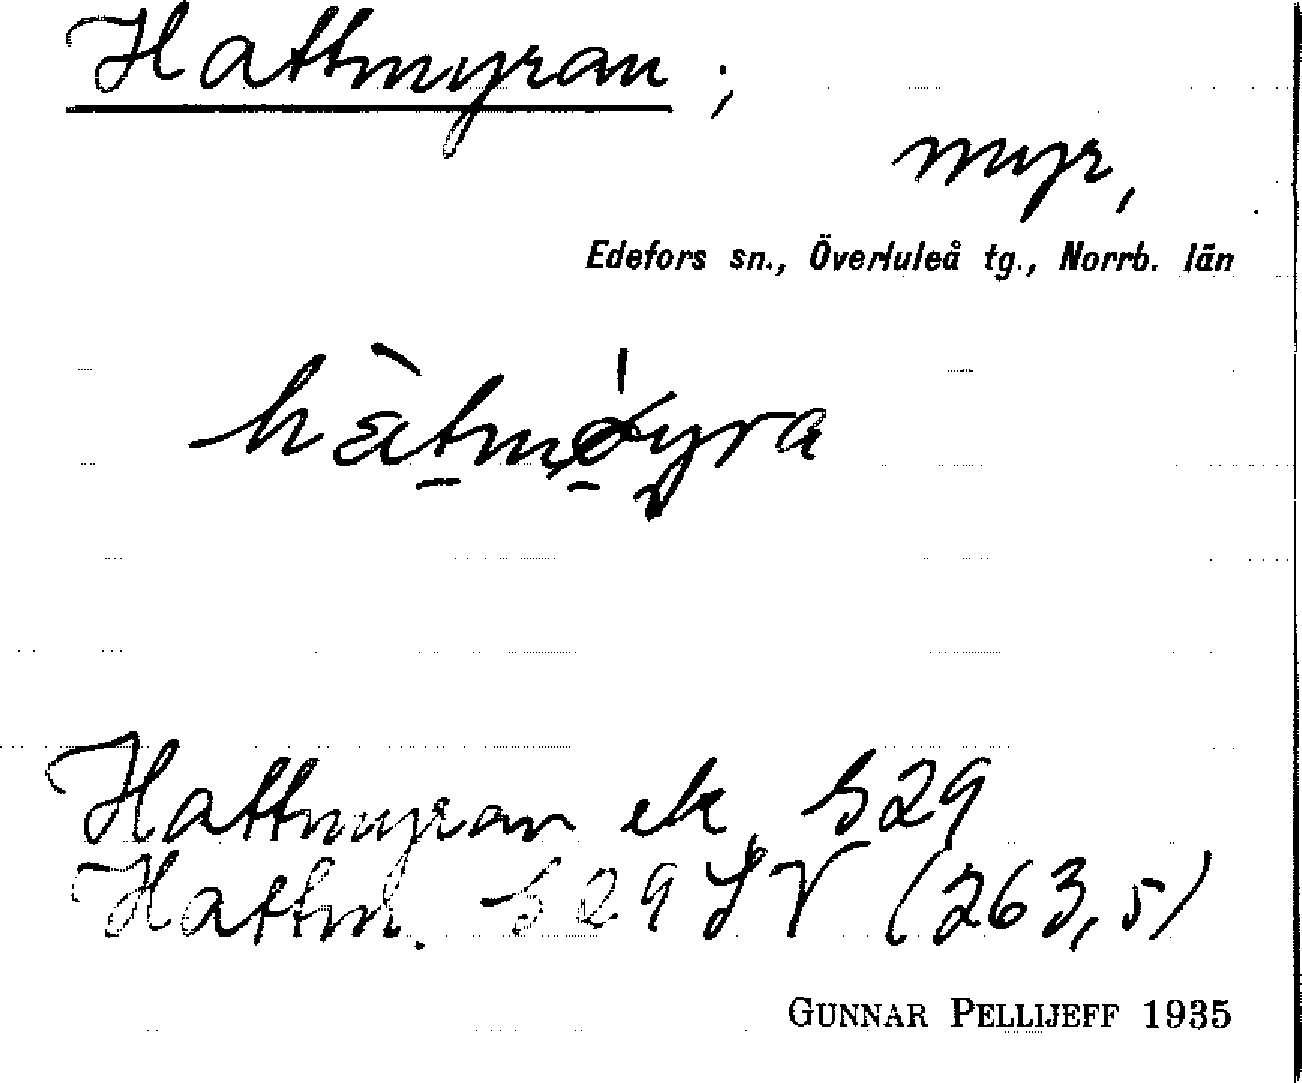 Hattmyran;
myr,
Edefors sn., Överluleå tg., Norrb. län
Hattmyran ek. b29
Hattm. b29 SV (263,5)
GUNNAR PELLIJEFF 1935